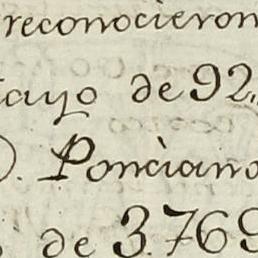 reconocieron
de 92
D. Ponciano
de 3.769